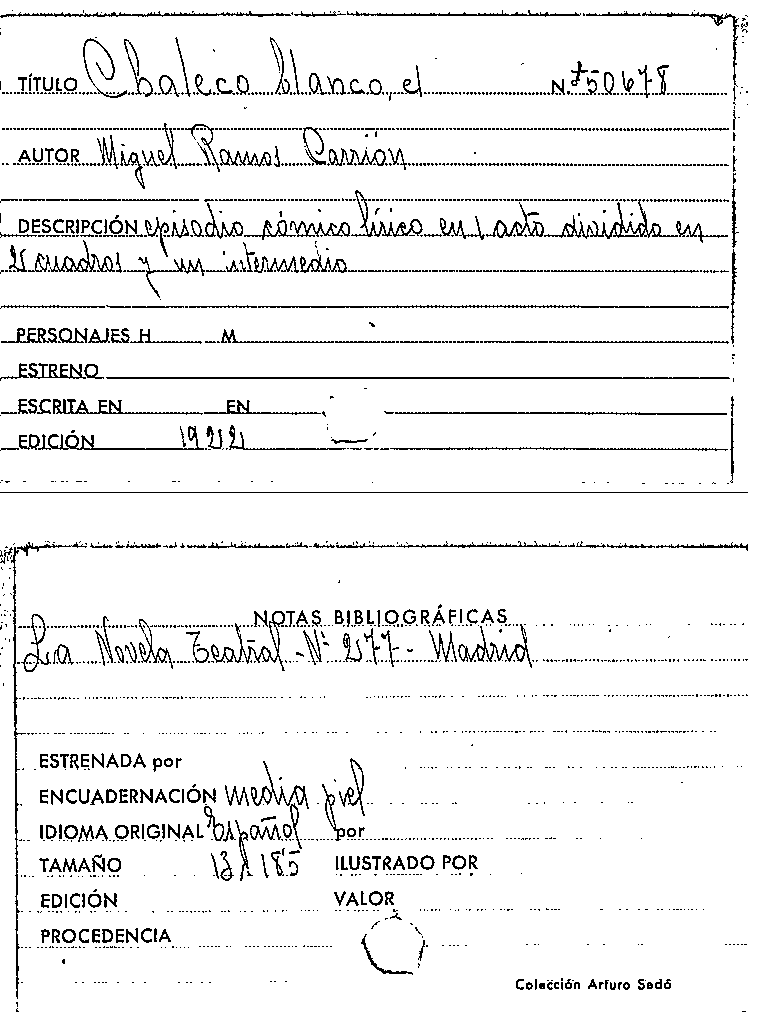 TÍTULO Chaleco blanco, el N.º 50678
AUTOR Miguel Ramos Carrión
DESCRIPCIÓN episodio cómico lírico en 1 acto dividido en
2 cuadros y un intermedio
PERSONAJES H M
ESTRENO
ESCRITA EN EN
EDICIÓN 1922
NOTAS BIBLIOGRÁFICAS
La Novela Teatral - Nº 277 - Madrid
ESTRENADA por
ENCUADERNACIÓN media piel
IDIOMA ORIGINAL Español por
TAMAÑO 13 x 185 ILUSTRADO POR
EDICIÓN VALOR
PROCEDENCIA
Colección Arturo Sedó